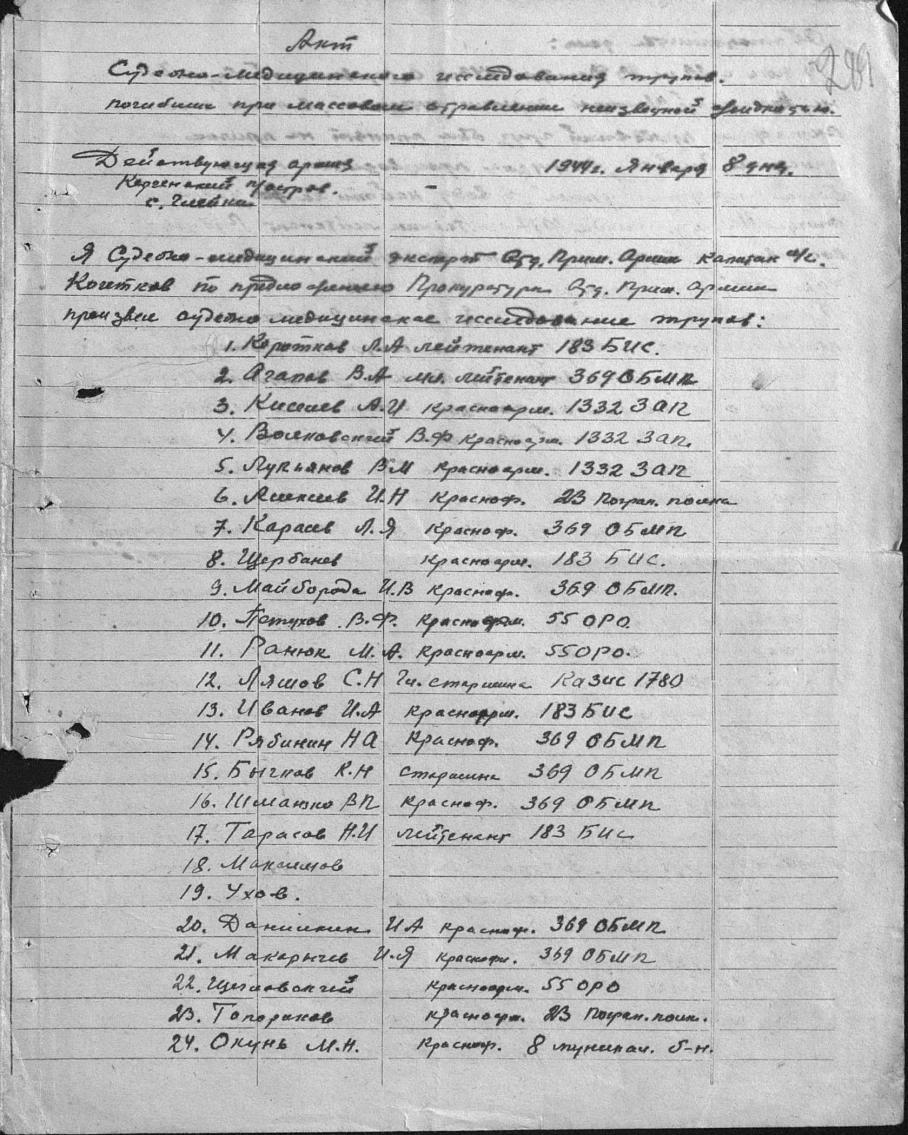 Акт
289
Судебно-медицинского исследования трупов.
погибших при массовом отравлении неизвестной жидкостью.
Действующая армия 1944г. Января 8 дня.
Керченский п/остров.
с. Глейки
Я Судебно-медицинский эксперт Отд. Прим. Армии капитан м/с.
по предложению Прокуратуры Отд. Прим. Армии
произвел судебно медицинское исследование трупов:
1. Коротков Л.А лейтенант 183 БИС.
2. Агапов В.А мл. лейтенант 369 ОБМП
3. Киселев А.И красноарм. 1332 ЗАП
4. Волковский В.Ф красноарм. 1332 Зап.
5. Лукьянов В.М красноарм. 1332 ЗАП
6. Алексеев И.Н Красноф. 23 Погран. полка
7. Карасев Л.Я Красноф. 369 ОБМП
8. Щербанев Красноарм. 183 БИС.
9. Майборода И.В Красноф. 369 ОБМП.
10. Петухов В.Ф. Красноарм. 55 ОРО.
11. Ранюк М.А. Красноарм. 55 ОРО.
12. Ляшов С.Н Гл. старшина КаЗИС 1780
13. Иванов И.А Красноарм. 183 БИС
14. Рябинин Н А Красноф. 369 ОБМП
15. Бычков К.Н старшина 369 ОБМП
16. В П красноф. 369 ОБМП
17. Тарасов Н.И лейтенант 183 БИС
18. Максимов
19. Ухов.
20. Данилкин И А красноф. 369 ОБМП
21. Макарычев И.Я краснофл. 369 ОБМП
22. красноарм. 55 ОРО
23. Топорков красноарм. 23 Погран. полк.
24. Окунь М.Н. Красноф. 8 б-н.